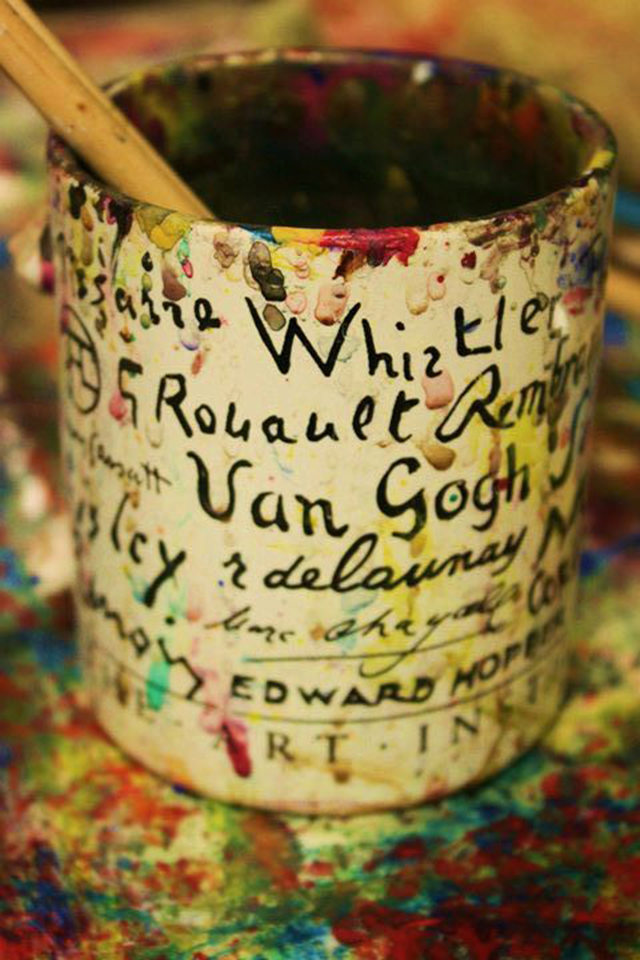 Whistler
G Rouault Rembra
Cassatt Van Gogh
sley r delaunay
Marc Chagall
EDWARD HOPPE
ART · INST